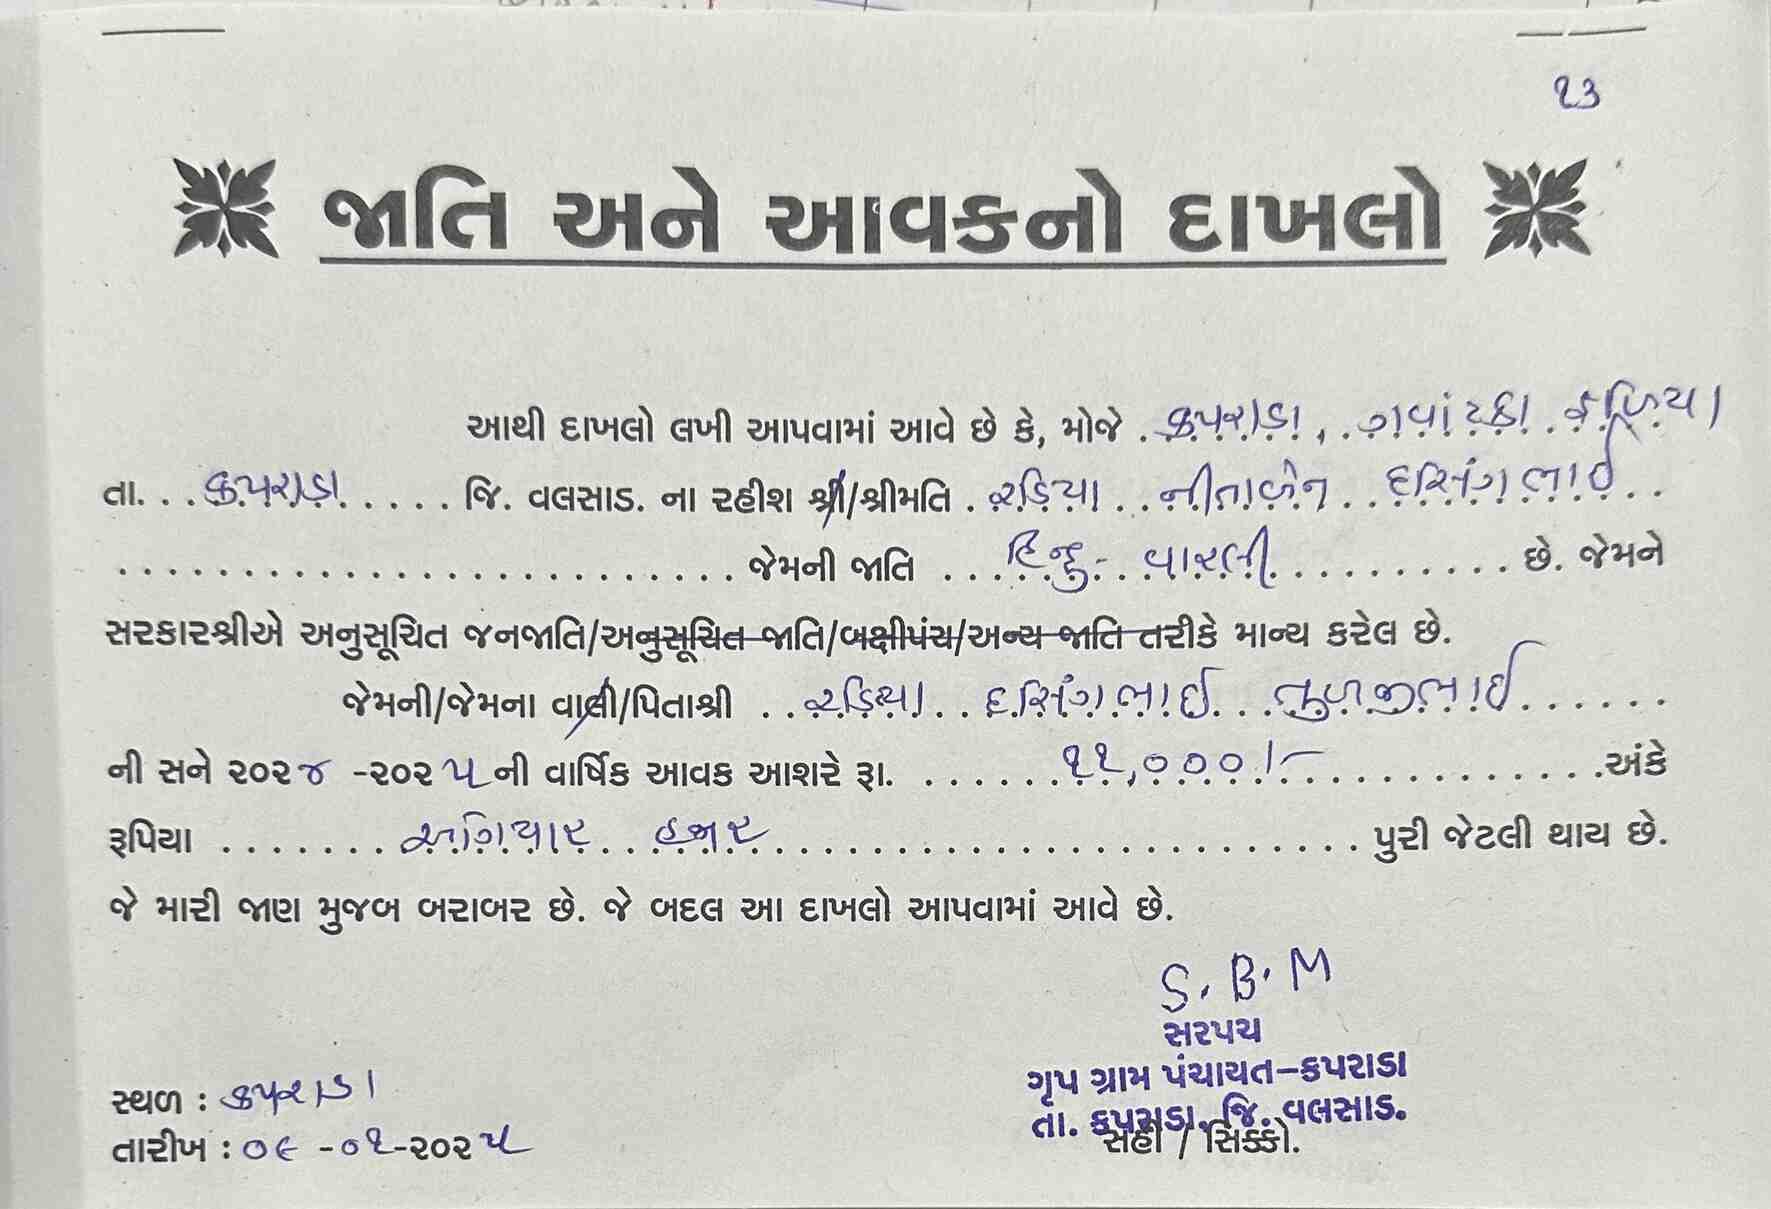 ૧૩
જાતિ અને આવકનો દાખલો
આથી દાખલો લખી આપવામાં આવે છે કે, મોજે કપરાડા, ગવાંટકા ફળિયા
તા. કપરાડા જિ. વલસાડ. ના રહીશ શ્રી/શ્રીમતિ રડિયા નીતાબેન દસિંગભાઈ
જેમની જાતિ હિન્દુ- વારલી છે. જેમને
સરકારશ્રીએ અનુસૂચિત જનજાતિ/અનુસૂચિત જાતિ/બક્ષીપંચ/અન્ય જાતિ તરીકે માન્ય કરેલ છે.
જેમની/જેમના વાલી/પિતાશ્રી રડિયા દસિંગભાઈ તુળજીભાઈ
ની સને ૨૦૨૪ -૨૦૨૫ ની વાર્ષિક આવક આશરે રૂા. ૧૧,૦૦૦/- અંકે
રૂપિયા અગિયાર હજાર પુરી જેટલી થાય છે.
જે મારી જાણ મુજબ બરાબર છે. જે બદલ આ દાખલો આપવામાં આવે છે.
S. B. M
સરપચ
ગૃપ ગ્રામ પંચાયત-કપરાડા
તા. કપરાડા, જિ. વલસાડ.
સહી / સિક્કો.
સ્થળ : કપરાડા
તારીખ : ૦૯ -૦૧-૨૦૨૫